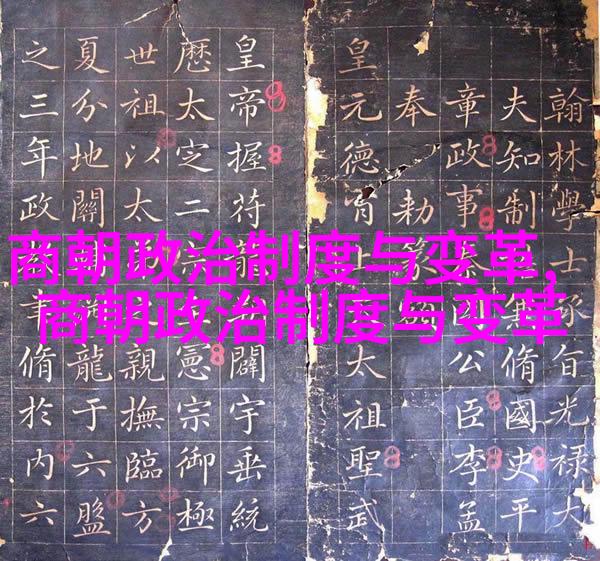 商朝政治制度与变革,
商朝政治制度与变革
翰林學士承旨光祿大
夫知制無脩國史平
章政事秦國公臣李孟
奉勅篆
皇元德太祖聖武
皇帝握符龍闢宇垂統
厯太定二宗憲宗御極
世祖以太親撫臨方
夏分地關龍于六盤
之三年政事脩於内六